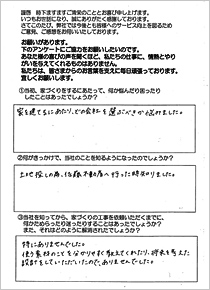 謹啓 時下ますますご清栄のこととお喜び申し上げます。
いつもお世話になり、誠にありがとうございます。
さてこのたび、弊社では今後ともお客様へのサービス向上を図るため
ご意見、ご感想をお伺いいたしております。
お願いがあります。
下のアンケートにご協力をお願いしたいのです。
あなた様の喜びの声を聞くほど、私たちの仕事に、情熱とやり
がいを与えてくれるものはありません。
私たちは、皆さまからのお言葉を支えに毎日頑張っております。
宜しくお願いします。
①当初、家づくりをするにあたって、何か悩んだり困ったり
したことはあったでしょうか?
家を建てるにあたり、どの会社を選ぶべきか悩みました。
②何がきっかけで、当社のことを知るようになったのでしょうか?
土地探しの為、佐藤不動産へ行った時知りました。
③当社を知ってから、家づくりの工事を依頼いただくまでに、
何かためらったり迷ったりすることはあったでしょうか?
また、それはどのように解消されたでしょうか?
特にありませんでした。
使う素材のことを分かりやすく教えてくれたり、将来を考えた
設計をしていただいたので、ありませんでした。